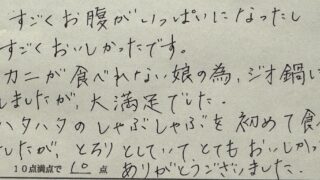 すごくお腹がいっぱいになったし
すごくおいしかったです。
カニが食べれない娘の為、ジオ鍋に
しましたが、大満足でした.
ハタハタのしゃぶしゃぶを初めて食べ
ましたが、とろりとしていてとてもおいしかっ
10点満点で 10 点 ありがとうございました.